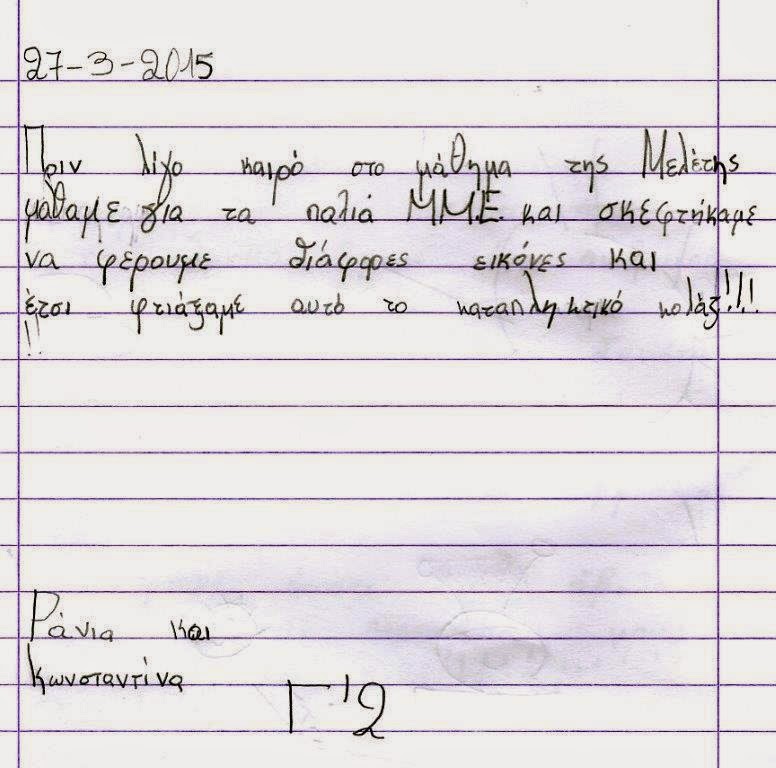 27-3-2015
Πριν λίγο καιρό στο μάθημα της Μελέτης
μάθαμε για τα παλιά ΜΜΕ. και σκεφτήκαμε
να φέρουμε διάφορες εικόνες και
έτσι φτιάξαμε αυτό το καταπληκτικό κολάζ!!!
!!
Ράνια και
Κωνσταντίνα
Γ'2